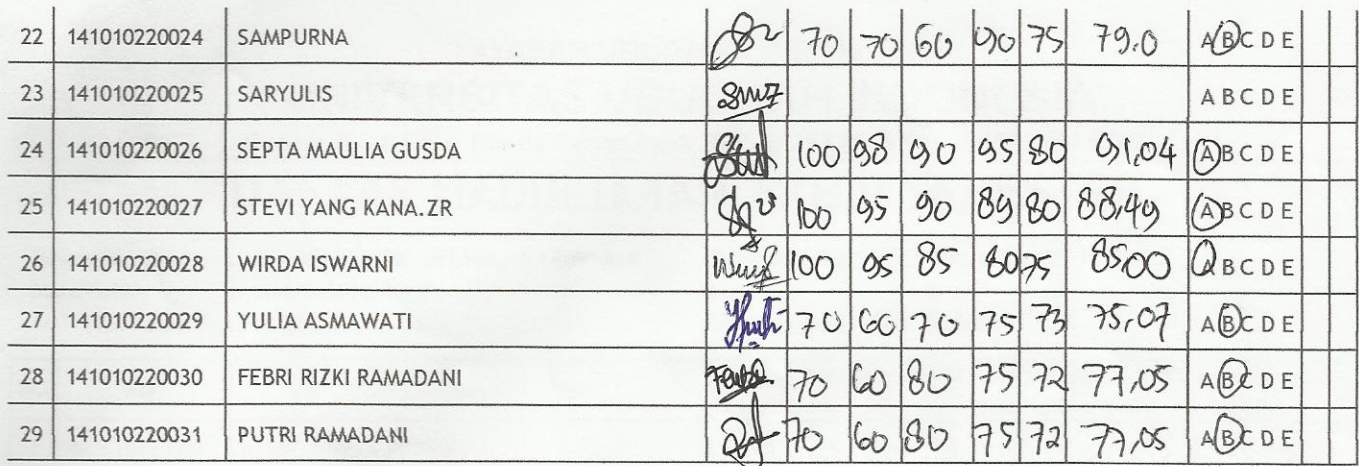 22 141010220024 SAMPURNA 70 70 60 90 75 79.0 A B C D E
23 141010220025 SARYULIS A B C D E
24 141010220026 SEPTA MAULIA GUSDA 100 98 90 95 80 91,04 A B C D E
25 141010220027 STEVI YANG KANA.ZR 100 95 90 89 80 88,49 A B C D E
26 141010220028 WIRDA ISWARNI 100 95 85 80 75 85,00 A B C D E
27 141010220029 YULIA ASMAWATI 70 60 70 75 73 75,07 A B C D E
28 141010220030 FEBRI RIZKI RAMADANI 70 60 80 75 72 77,05 A B C D E
29 141010220031 PUTRI RAMADANI 70 60 80 75 72 77,05 A B C D E